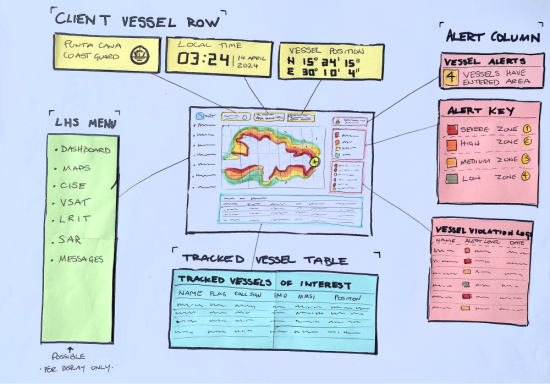 CLIENT VESSEL ROW
PUNTA CANA
COAST GUARD
LOCAL TIME
03:24 14 APRIL
2024
VESSEL POSITION
N 15° 24' 15"
E 30° 10' 4"
ALERT COLUMN
VESSEL ALERTS
4 VESSELS HAVE
ENTERED AREA
ALERT KEY
SEVERE ZONE 1
HIGH ZONE 2
MEDIUM ZONE 3
LOW ZONE 4
VESSEL VIOLATION LOGS
NAME ALERT LEVEL DATE
LHS MENU
• DASHBOARD
• MAPS
• CISE
• VSAT
• LRIT
• SAR
• MESSAGES
POSSIBLE
TRACKED VESSEL TABLE
TRACKED VESSELS OF INTEREST
NAME FLAG CALL SIGN IMO MMSI POSITION